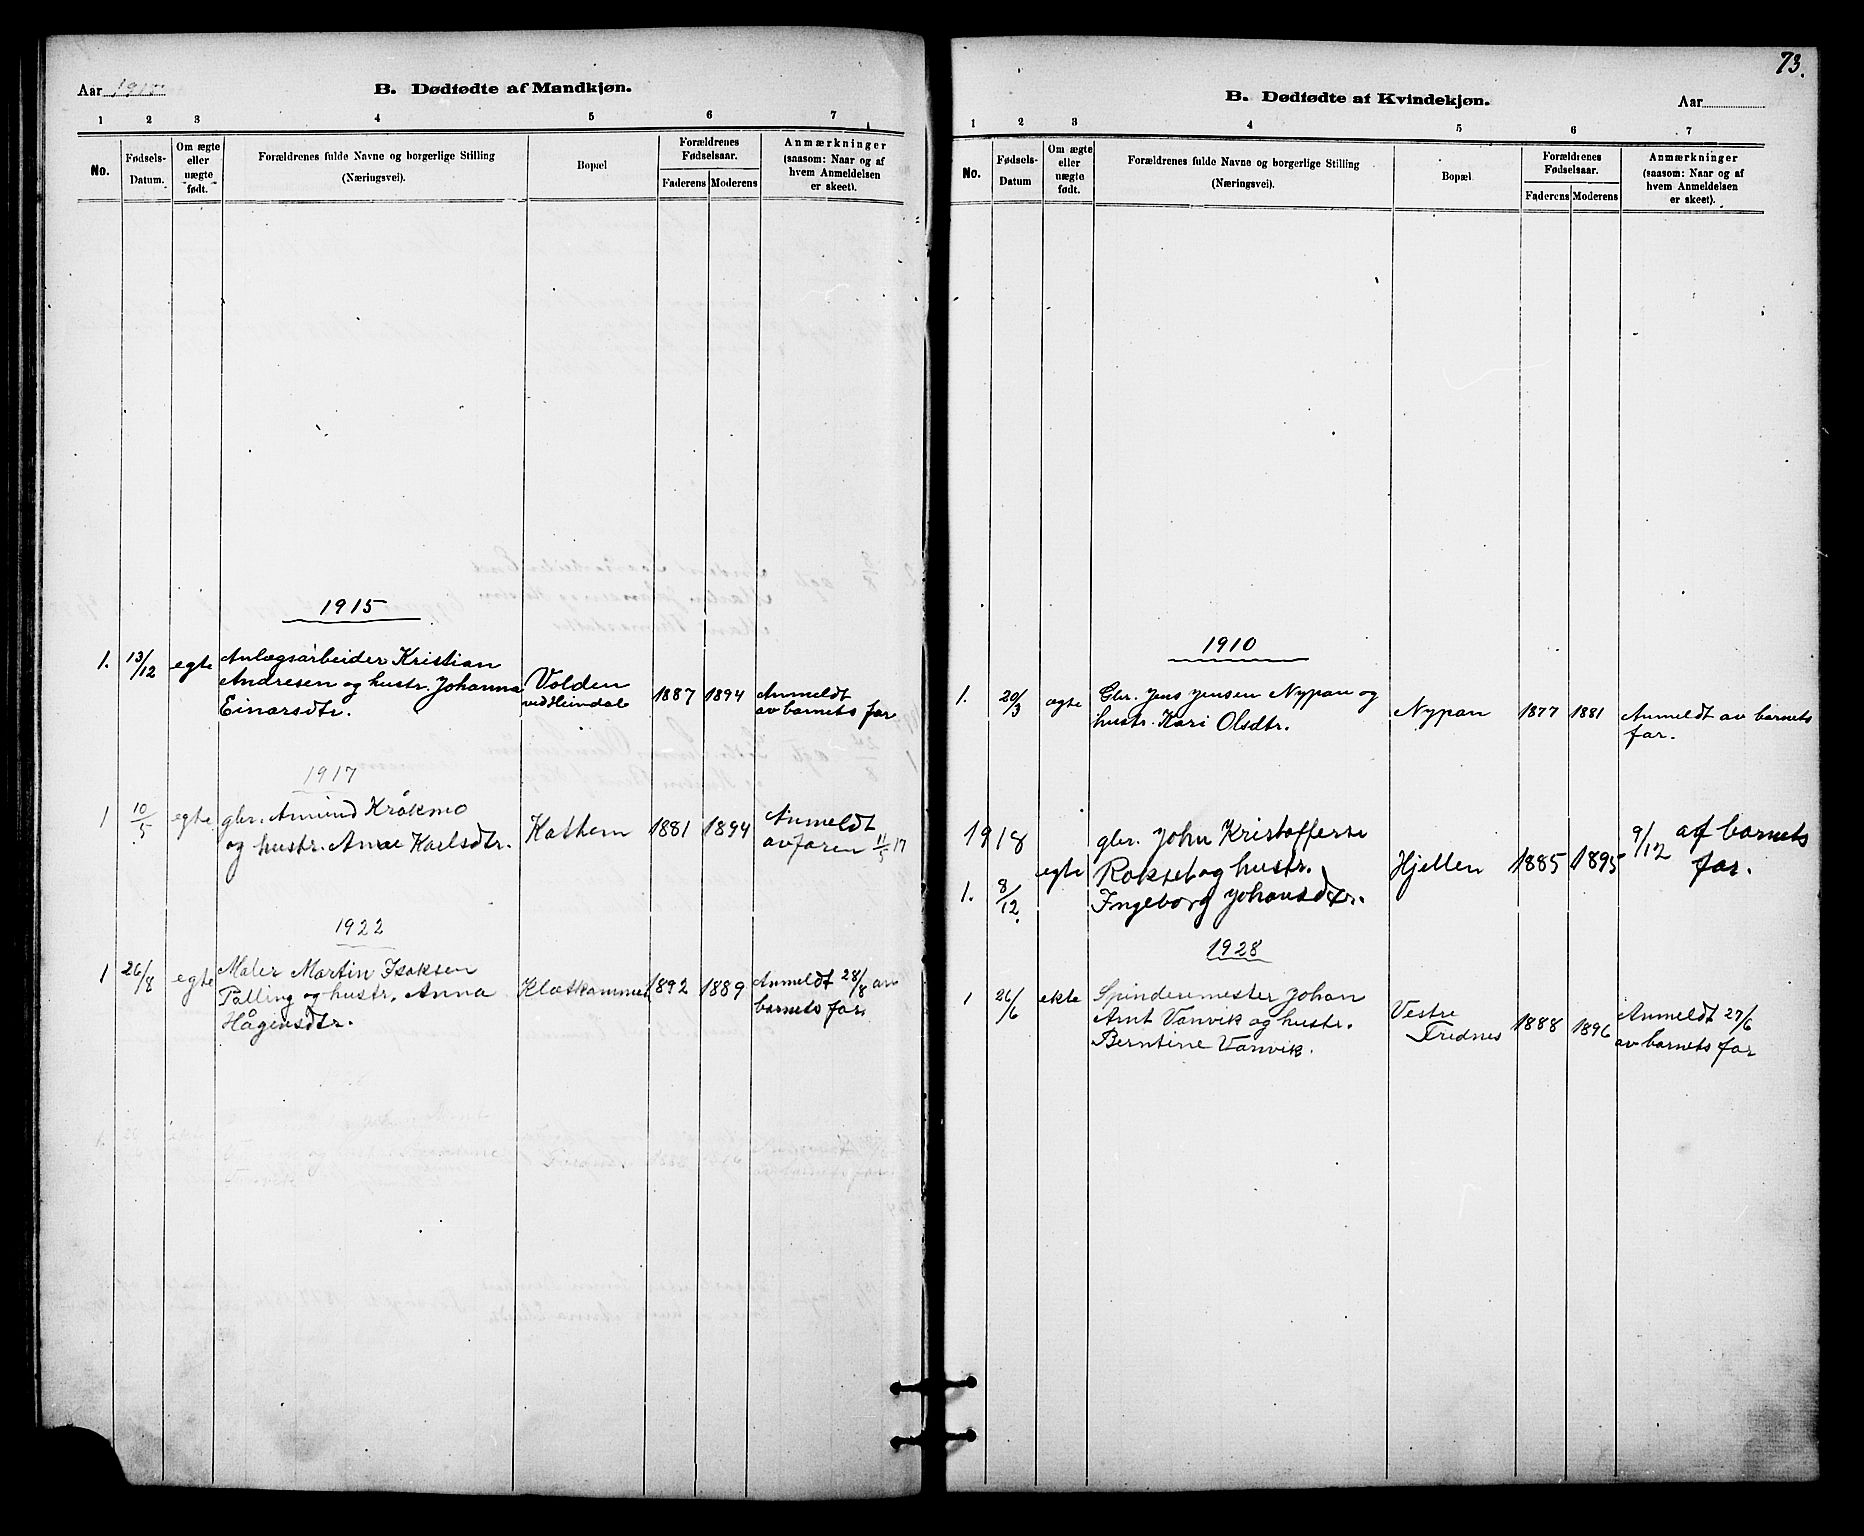 Aar
B. Dødfødte af Mandkjøn.
1 2 3 4 5 6 7
No.
Fødsels-
Datum.
Om ægte
eller
uægte
født.
Forældrenes fulde Navne og borgerlige Stilling
(Næringsvei).
Bopæl
Forældrenes
Fødselsaar.
Faderens Moderens
Anmærkninger
(saasom: Naar og af
hvem Anmeldelsen
er skeet).
1915
1. 13/12 egte
Anlægsarbeider Kristian
Andresen og hustr. Johanna
Einarsdtr.
Volden
ved Heimdal
1887 1894
Anmeldt
av barnets far
1917
1 10/5 egte
gbr. Amund Kråkmo
og hustr. Karlsdtr.
Kattem
1881 1894
Anmeldt
av faren 11/5 17
1922
1 26/8 egte
Maler Martin Isaksen
og hustr. Anna
Hågensdtr.
1892 1889
Anmeldt 28/8 av
barnets far.
73.
B. Dødfødte af Kvindekjøn.
Aar
1 2 3 4 5 6 7
No.
Fødsels-
Datum
Om ægte
eller
uægte
født.
Forældrenes fulde Navne og borgerlige Stilling
(Næringsvei).
Bopæl.
Forældrenes
Fødselsaar.
Faderens Moderens
Anmærkninger
(saasom: Naar og af
hvem Anmeldelsen
er skeet).
1910
1. 20/3 egte
Gbr. Jens Jensen Nypan og
hustr. Kari Olsdtr.
Nypan
1877 1881
Anmeldt av barnets
far.
1918
1. 8/12 egte
gbr. John Kristofferse
og hustr.
Ingeborg Johansdtr.
Hjellen
1885 1895
9/12 af barnets
far.
1928
1 26/6 ekte
Spinderemester Johan
Arnt Vanvik og hustr.
Berntine Vanvik.
Vestre
1888 1896
Anmeldt 27/6
av barnets far